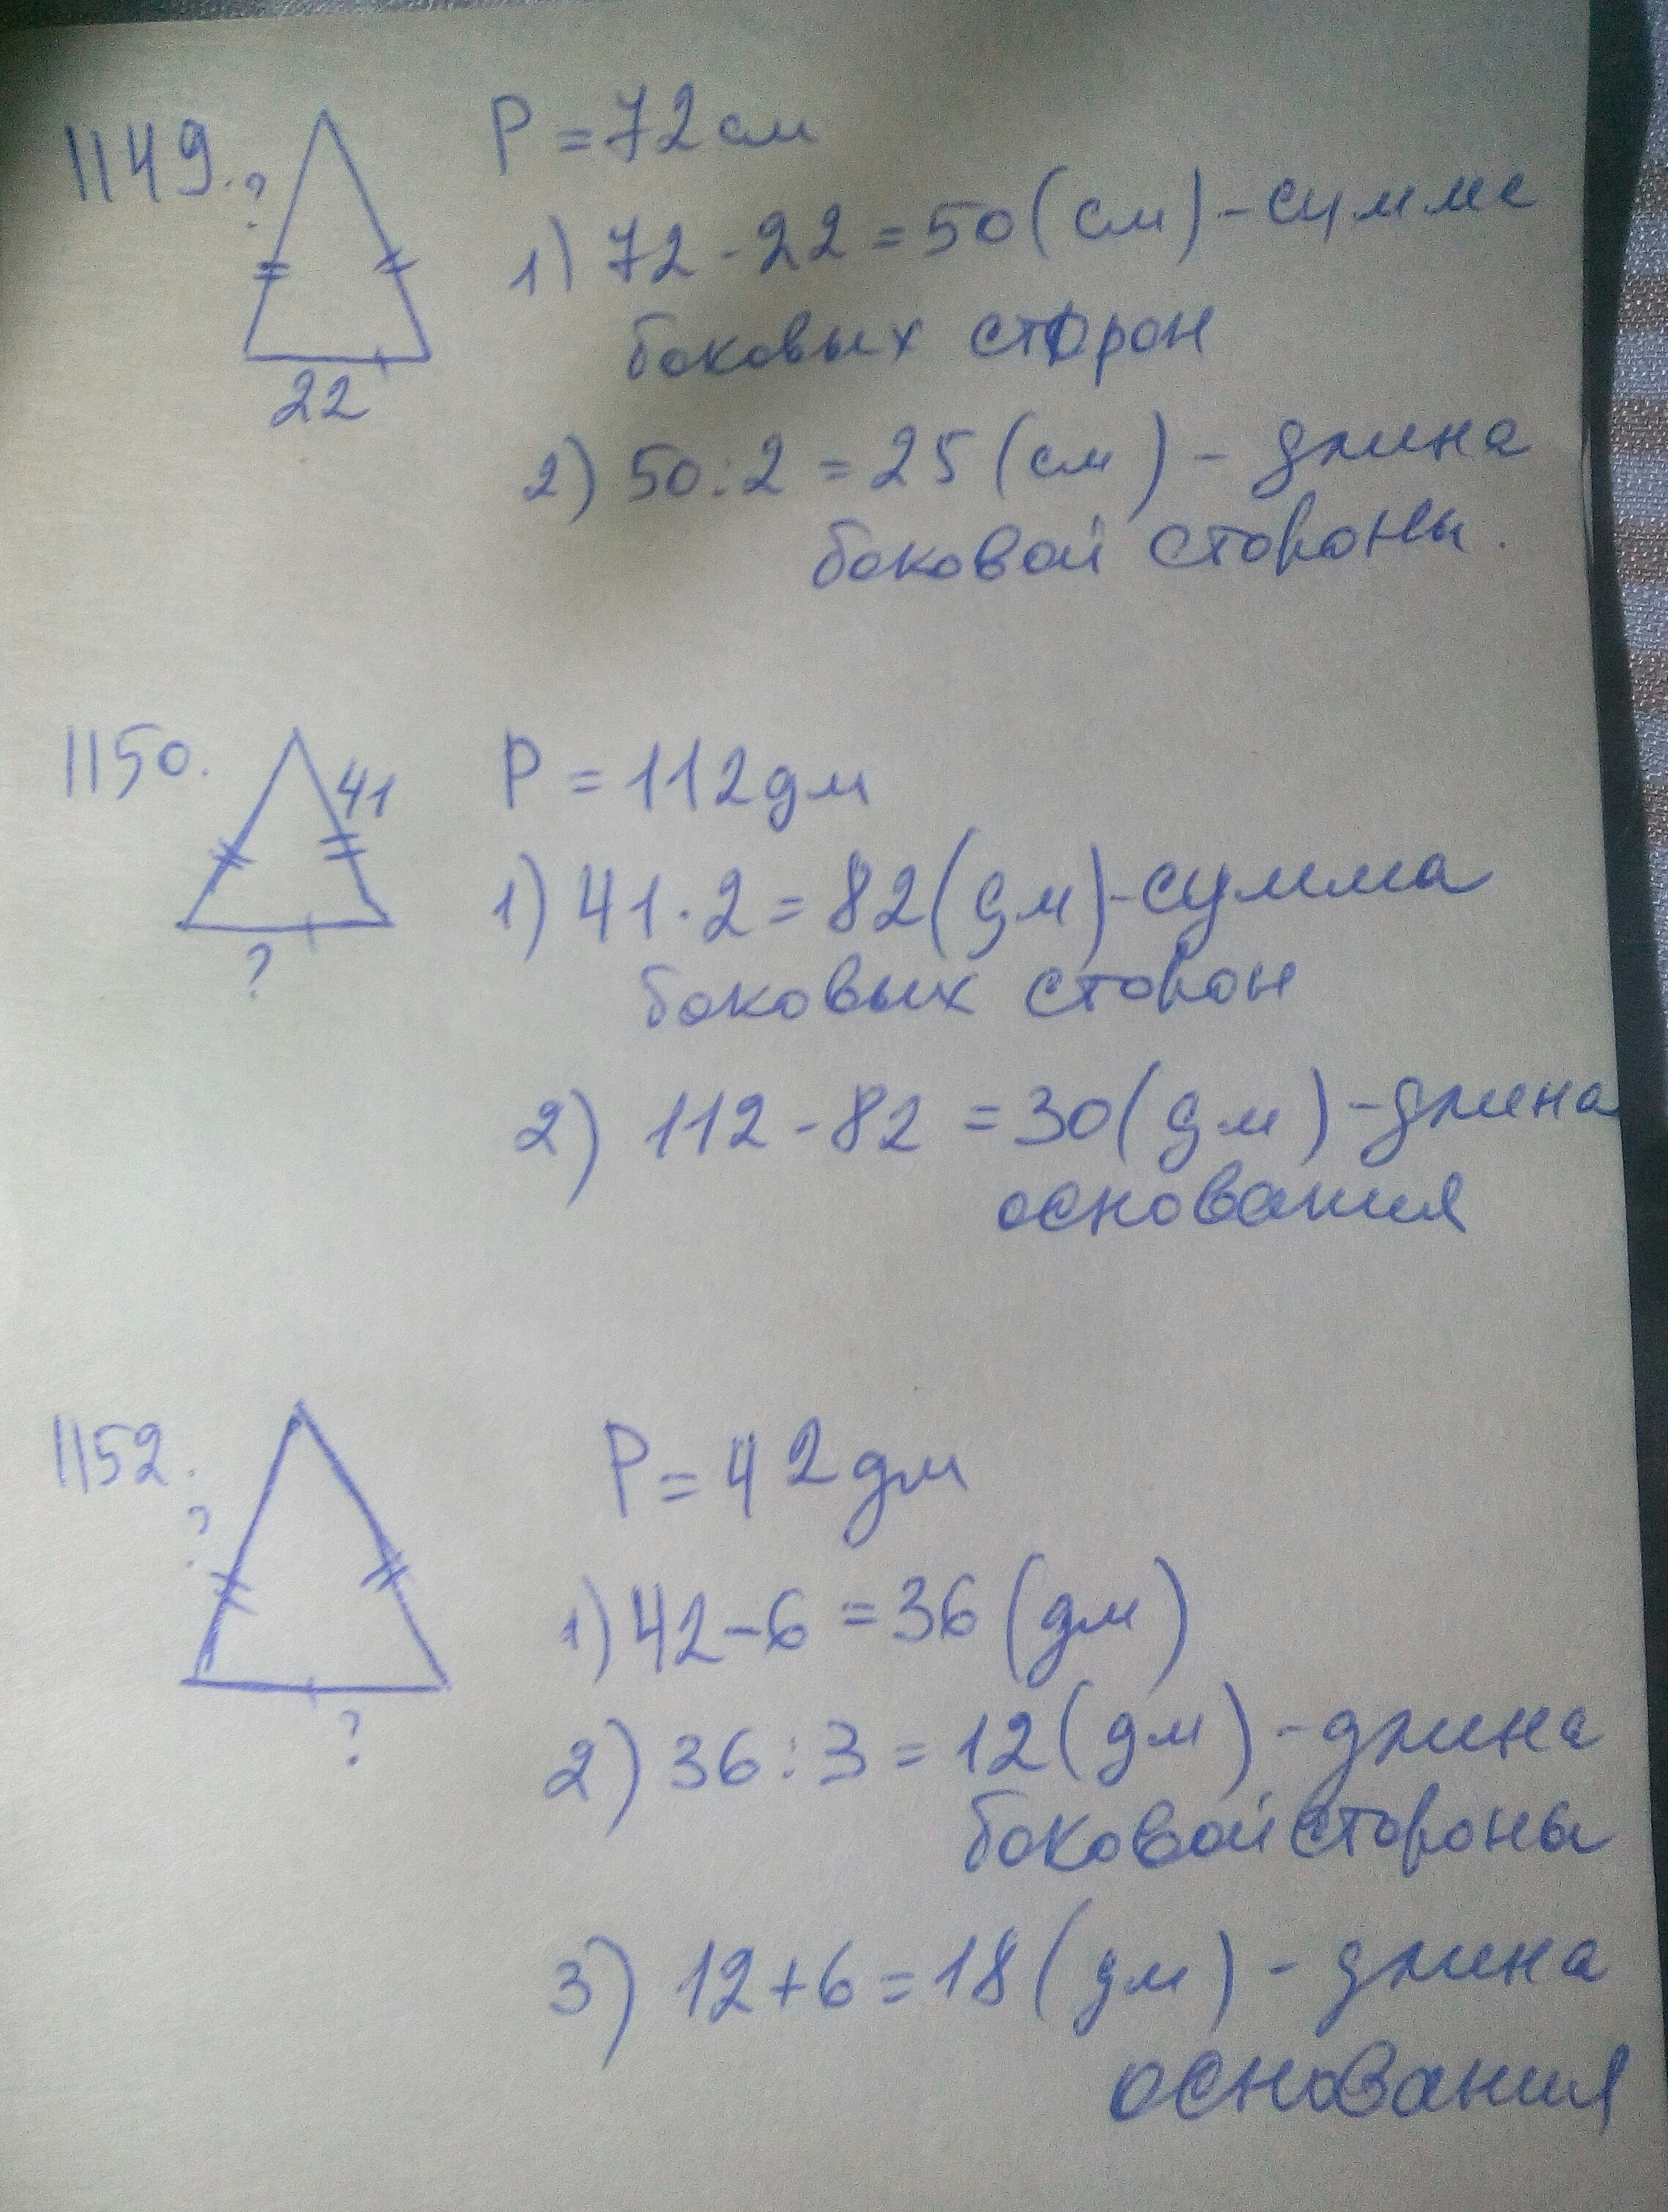 1149. ?
22
P = 72 см
1) 72 - 22 = 50 (см) - сумма
боковых сторон
2) 50 : 2 = 25 (см) - длина
боковой стороны.
1150.
41
?
P = 112 дм
1) 41 · 2 = 82 (дм) - сумма
боковых сторон
2) 112 - 82 = 30 (дм) - длина
основания
1152.
?
?
P = 42 дм
1) 42 - 6 = 36 (дм)
2) 36 : 3 = 12 (дм) - длина
боковой стороны
3) 12 + 6 = 18 (дм) - длина
основания